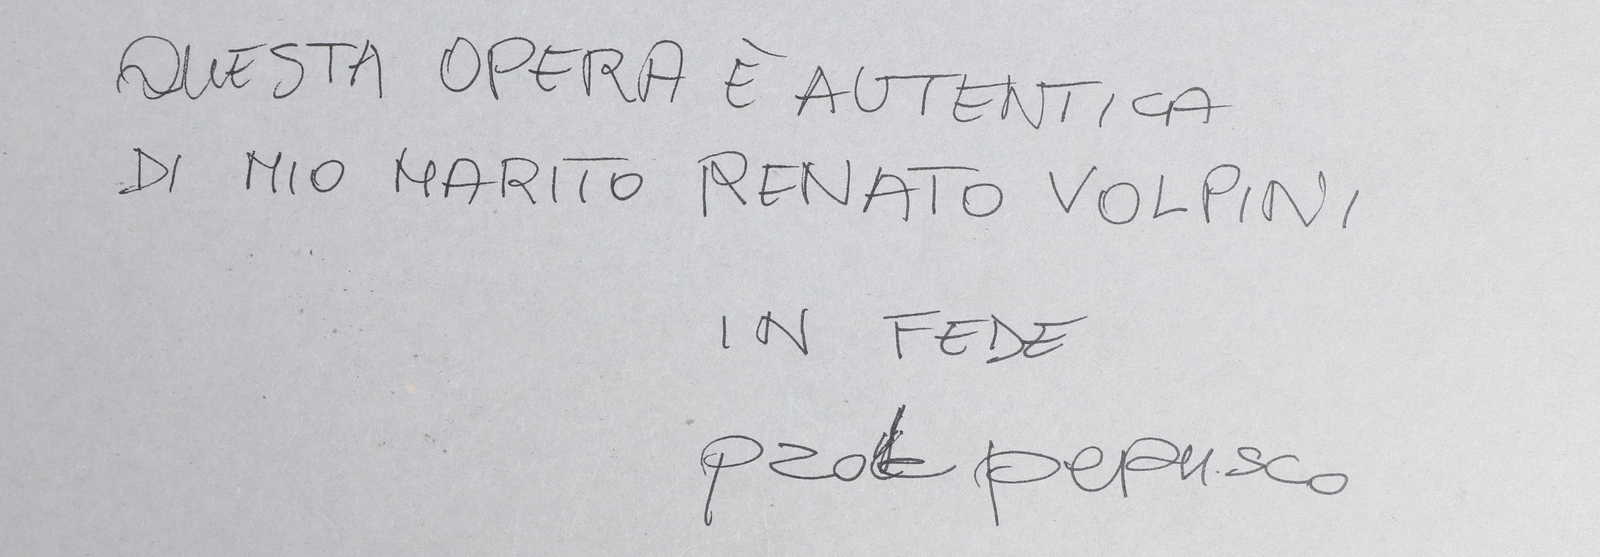 QUESTA OPERA È AUTENTICA
DI MIO MARITO RENATO VOLPINI
IN FEDE